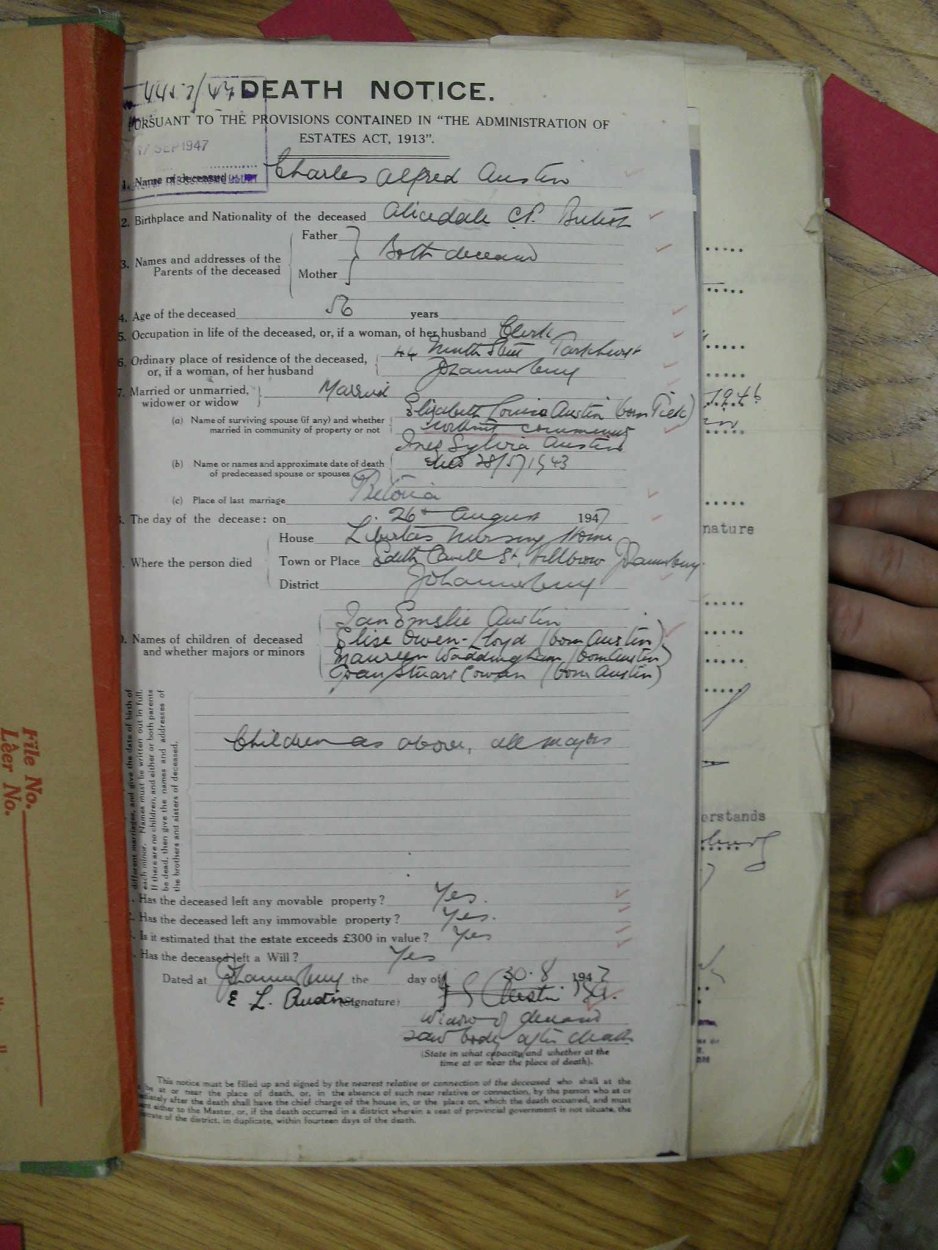 4457/47 DEATH NOTICE.
PURSUANT TO THE PROVISIONS CONTAINED IN "THE ADMINISTRATION OF
ESTATES ACT, 1913".
17 SEP 1947
1. Name of deceased Charles Alfred Austin
2. Birthplace and Nationality of the deceased Alicedale C.P. British
3. Names and addresses of the Parents of the deceased
Father
Both deceased
Mother
4. Age of the deceased 56 years
5. Occupation in life of the deceased, or, if a woman, of her husband Clerk
6. Ordinary place of residence of the deceased, 44 Ninth Street Parkhurst
or, if a woman, of her husband Johannesburg
7. Married or unmarried, widower or widow Married
Elizabeth Louisa Austin (born
1946
(a) Name of surviving spouse (if any) and whether
married in community of property or not without community
Inez Sylvia Austin
(b) Name or names and approximate date of death
of predeceased spouse or spouses died 28/5/1943
(c) Place of last marriage Pretoria
The day of the decease: on 26th August 1947
House Libertas Nursing Home
Where the person died Town or Place Edith Cavell St, Hillbrow Johannesburg
District Johannesburg
Ian Emslie Austin
Names of children of deceased Elise Owen-Lloyd (born Austin)
and whether majors or minors Maureen Waddingham (born Austin)
Joan Stuart Cowan (born Austin)
different marriages, and give the date of birth of
each minor. Names must be written out in full.
If there are no children, and either or both parents
be dead, then give the names and addresses of
the brothers and sisters of deceased.
Children as above, all majors
Has the deceased left any movable property? Yes.
Has the deceased left any immovable property? Yes.
Is it estimated that the estate exceeds £300 in value? Yes
Has the deceased left a Will? Yes
Dated at Johannesburg the day of 30.8 1947
E L. Austin (Signature)
Widow of deceased
saw body after death
(State in what capacity and whether at the
time at or near the place of death).
This notice must be filled up and signed by the nearest relative or connection of the deceased who shall at the
be at or near the place of death, or, in the absence of such near relative or connection, by the person who at or
mediately after the death shall have the chief charge of the house in, or the place on, which the death occurred, and must
sent either to the Master, or, if the death occurred in a district wherein a seat of provincial government is not situate, the
of the district, in duplicate, within fourteen days of the death.
File No.
Lêer No.
nature
erstands